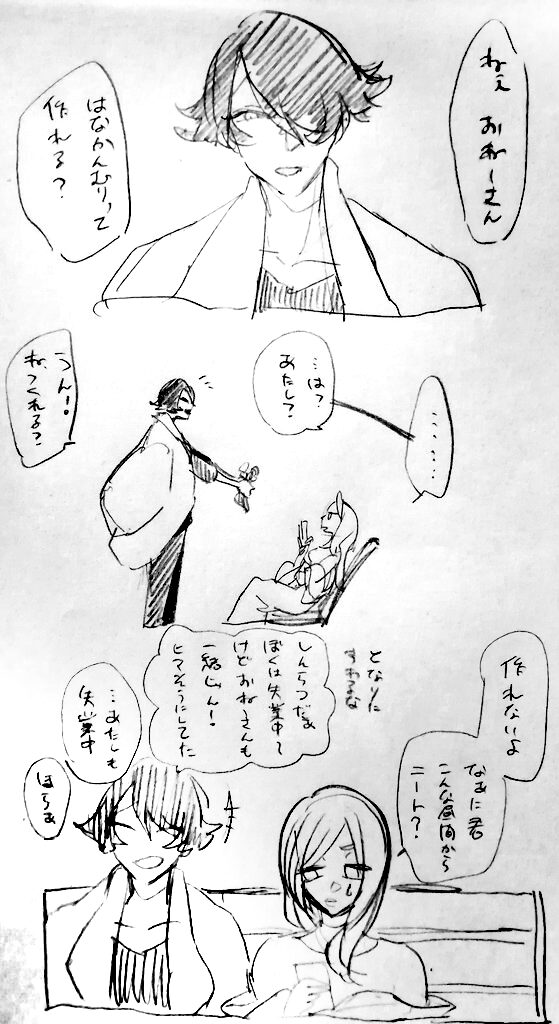 ねぇ おねーさん
はなかんむりって
作れる？
……
…は？
あたし？
うん！
ね、つくれる？
作れないよ
なぁに君
こんな昼間から
ニート？
となりに
すわるな
しんらつだぁ
ぼくは失業中〜
けどおねーさんも
一緒じゃん！
ヒマそうにしてた
…あたしも
失業中
ほらぁ